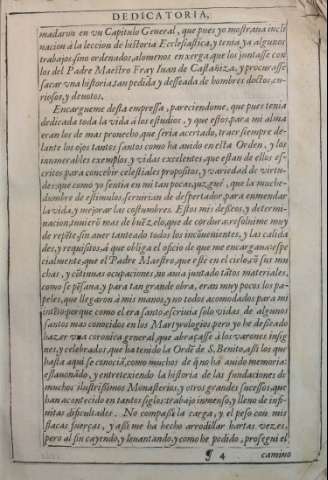 DEDICATORIA,
mãdaron en vn Capitulo General, que pues yo mostraua incli
nacion à la leccion de historia Ecclesiastica, y tenia ya algunos
trabajos, sino ordenados, alomenos en xerga, que los juntasse con
los del Padre Maestro Fray Iuan de Castañiza, y procurasse
sacar vna historia tan pedida y desseada de hombres doctos, cu
riosos, y deuotos.
Encargueme desta empressa, pareciendome, que pues tenia
dedicada toda la vida à los estudios, y que estos para mi alma
eran los de mas prouecho, que seria acertado, traer siempre de-
lante los ojos tantos santos como ha auido en esta Orden, y los
innumerables exemplos, y vidas excelentes, que estan de ellos es-
critos para concebir celestiales propositos, y variedad de virtu-
des: que como yo sentia en mi tan pocas, juzguè, que la muche-
dumbre de estimulos, seruirian de despertador para enmendar
la vida, y mejorar las costumbres. Estos mis desseos, y determi-
nacion, tuuierō mas de buē zelo, que de cordura: resoluime muy
de repēte sin auer tanteado todos los incōuenientes, y las calida
des, y requisitos, à que obliga el oficio de que me encargaua: espe
cialmente, que el Padre Maestro, que estè en el cielo, cō sus mu
chas, y cōtinuas ocupaciones, no auia juntado tātos materiales,
como se pēsaua, y para tan grande obra, eran muy pocos los pa-
peles, que llegaron à mis manos, y no todos acomodados para mi
intēto: porque como el era santo, escriuia solo vidas de algunos
santos mas conocidos en los Martyrologios pero yo he desseado
hazer vna coronica general, que abraçasse à los varones insig
nes, y celebrados, que ha tenido la Ordē de S. Benito, assi los que
hasta aqui se conocia, como muchos de q̄ no ha auido memoria:
eslauonādo, y entretexiendo la historia de las fundaciones de
muchos ilustrissimos Monasterios, y otros grandes sucessos, que
han acontecido en tantos siglos: trabajo inmenso, y lleno de infi-
nitas dificultades. No compassè la carga, y el peso con mis
flacas fuerças, y assi me ha hecho arrodillar hartas vezes,
pero al fin cayendo, y leuantando, y como he podido, prosegui el
¶ 4 camino